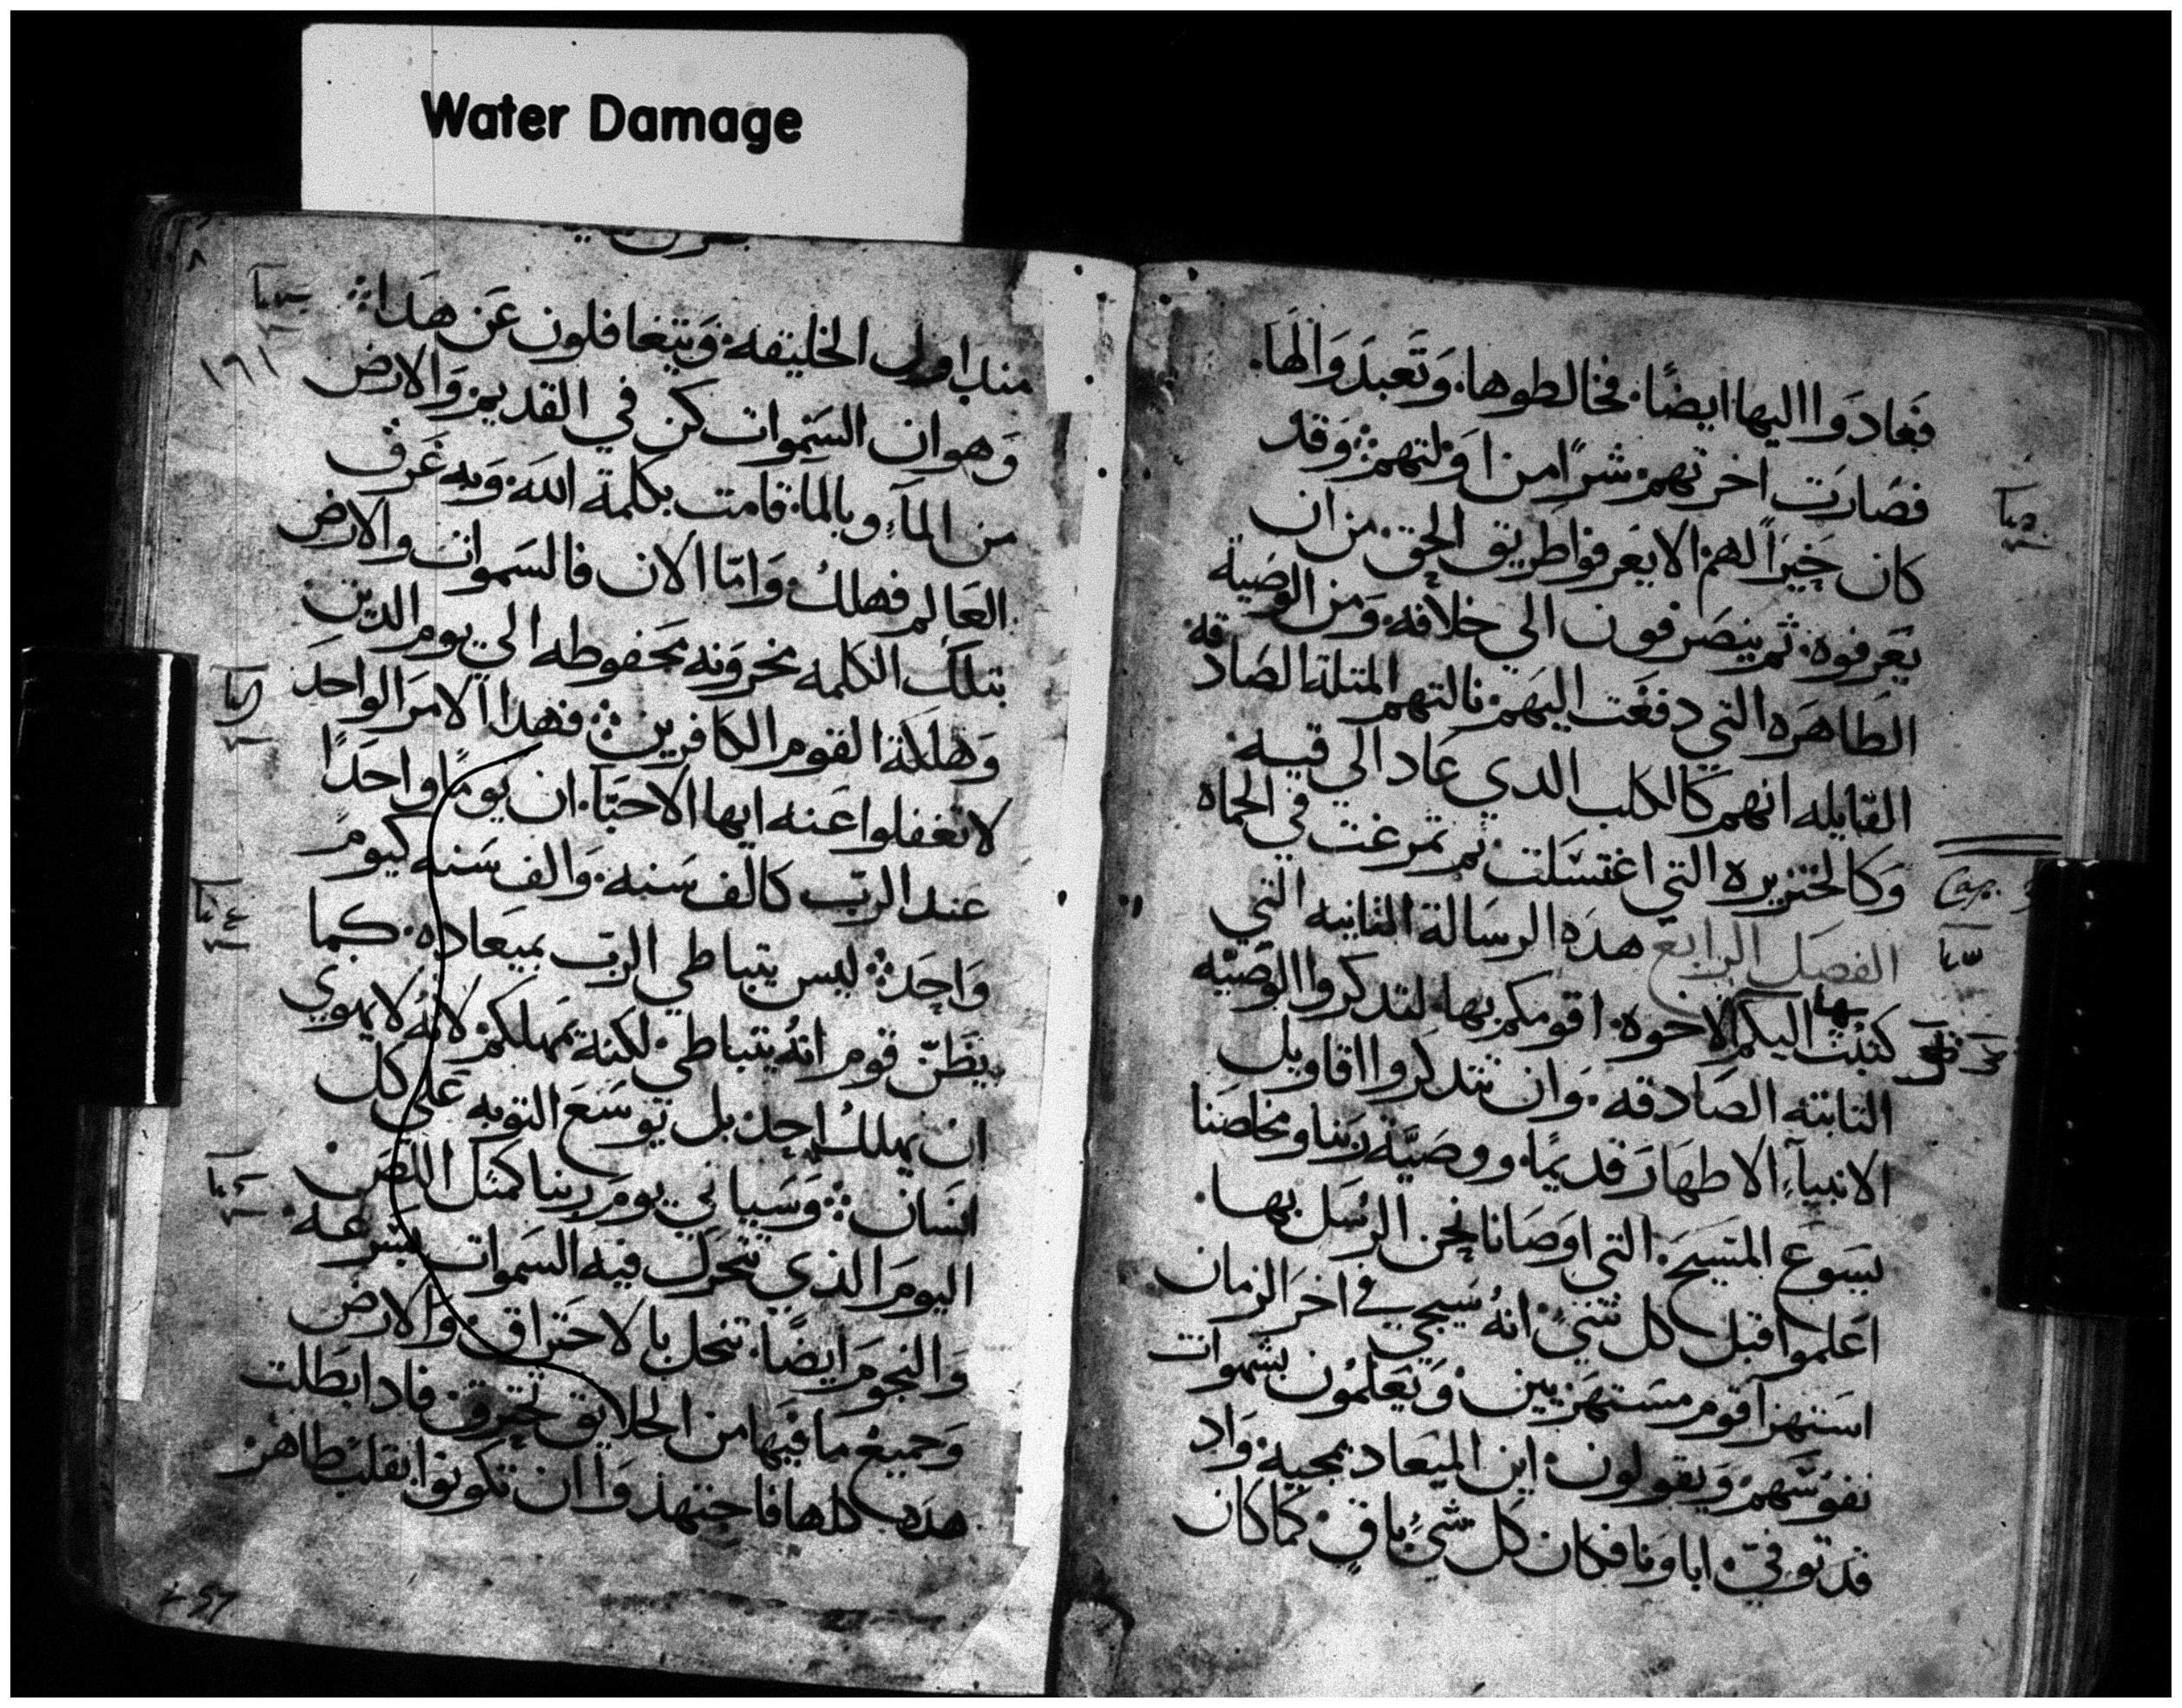 Water Damage
فعادوا اليها ايضًا. فخالطوها. وَتَعبدَوَا لهَا.
فصَارت اخرتهم شرًا من اوَلتهم؛ وَقد
كان خيرًا لهم الا يعرفوا طريق الحق. من ان
يَعَرفوه. ثم ينصَرفون الي خلافه. وَمن الوصَية
الطَاهَره التي دفعَت اليهَم. نالتهم المتلة الصَادقه
القايله انهم كالكلب الدي عَاد الي قيه.
وَكالخنزيره التي اغتسَلت ثم تمرغت في الحماه
الفصَل الرابع هدَه الرسَالة الثانيه التي
كتبت بها اليكم الاخوه. اقومكم بها. لتدكروا الوَصَيه
الثابته الصَادقه. وَان تتدكروا اقاويل
الانبيآء الاطهَار قديمًا. ووصَيّة ربنا ومخلصَنا
يسَوعَ المسَيح. التي اوصَانا نحن الرسَل بها.
اعَلموا قبل كل شيء انهُ سَيجي في اخرَ الزمان
استهزآ قوم مسَتهزيين. وَيَعَلمون بشهوات
نفوسَهم. وَيقولون. اين الميَعاد بمجيه. وَاد
قد توفي اباونا فكان كل شيء باق. كما كان
مند اول الخليقه. وَيتغافلون عَن هدَا؛
وَهو ان السَموات كن في القديم. وَالارض
من المآء وبالمآء. قامت بكلمة الله. وَبه غَرق
العَالم فهلكُ. وَامّا الان فالسَموات والارض
بتلك الكلمه مخروَنه محَفوطه الي يوم الدين
وَهلاكة القوم الكافرين؛ فهدا الامرَ الواحدَ
لا تغفلوا عَنه ايها الاحبّا. ان يومًا واحدًا
عند الرب كالف سَنه. وَالف سَنه كيوم
وَاحد؛ ليس يتباطي الربَ بميعاده. كما
يظَنّ قوم انهُ يتباطي. لكنهُ يمهلكم لانهُ لا يهوي
ان يهلكُ احد. بل توسَعَ التوبه عَلي كل
انسَان؛ وَسَياتي يومَ ربنا كمثل اللصَ.
اليومَ الذي تتحرَك فيه السَموات بسَرعَه.
وَالنجومَ ايضًا. تنحل بالاحترَاق. وَالارض
وَجميعَ ما فيَها من الخلايق تحترق. فادا بَطلت
هدَه كلها فاجتهدوَا ان تكونوا بقلب طاهر
١٦١
٨
Cap. 3